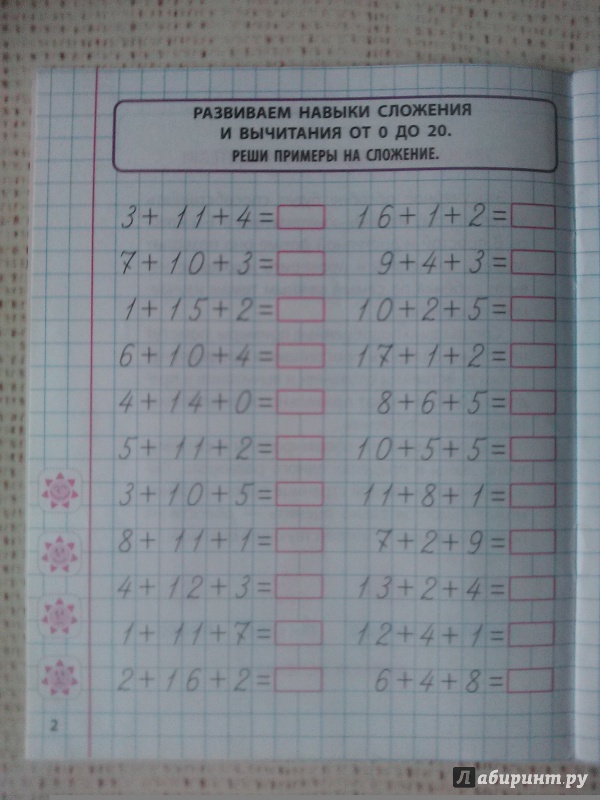 РАЗВИВАЕМ НАВЫКИ СЛОЖЕНИЯ
И ВЫЧИТАНИЯ ОТ 0 ДО 20.
РЕШИ ПРИМЕРЫ НА СЛОЖЕНИЕ.
3+ 11+4=
7+10+3=
1+15+2=
6+10+4=
4+14+0=
5+11+2=
3+10+5=
8+11+1=
4+12+3=
1+11+7=
2+16+2=
16+1+2=
9+4+3=
10+2+5=
17+1+2=
8+6+5=
10+5+5=
11+8+1=
7+2+9=
13+2+4=
12+4+1=
6+4+8=
2
Лабиринт.ру